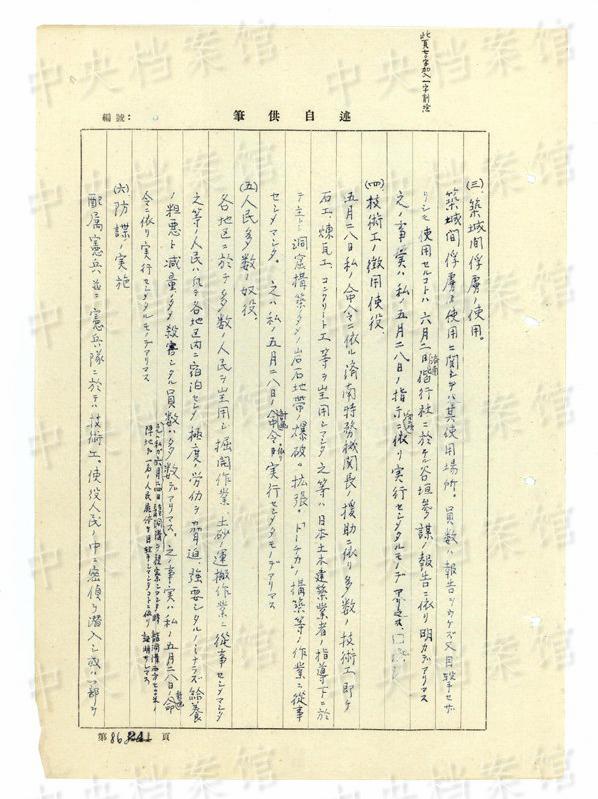 此頁七字加入一字削除
筆供自述
編號：
(三)、築城間俘虜ノ使用。
築城間俘虜ノ使用ニ関シテハ其使用場所。員数ハ報告ヲウケズ又目撃セザ
リシモ使用セルコトハ六月二日済南偕行社ニ於ケル谷垣参謀ノ報告ニ依リ明カデアリマス
之ノ事実ハ私ノ五月二八日ノ指示ニ依リ実行センメタルモノデアリマス
(四)技術工ノ徴用使役、
五月二八日私ノ命令ニ依ル済南特務機関長ノ援助ニ依リ多数ノ技術工即チ
石工、煉瓦工、コンクリート工等ヲ雇用シマシタ 之等ハ日本土木建築業者ノ指導下ニ於
テ主トシ洞窟構築ノタメノ岩石地帯ノ爆破。拡張。トーチカノ構築等ノ作業ニ従事
センメマシタ。之ハ私ノ五月二八日ノ命令ニ依リ実行センメタモノデアリマス
(五)人民多数ノ奴役。
各地区ニ於テ多数ノ人民ヲ雇用シ掘開作業、土砂ノ運搬作業ニ従事センメマシタ
之等ノ人民ハ凡テ各地区内ニ宿泊センメ極度ノ労働ヲ強要シタルノミナラズ給養
ノ粗悪ト減量ノタメ殺害シタル員数ハ多数デアリマス。之ノ事実ハ私ノ五月二八日ノ命
令ニ依リ実行センメタルモノデアリマス
(六)防諜ノ実施
配属憲兵並ニ憲兵隊ニ於テハ技術工、使役人民ノ中ニ密偵ヲ潜入シ或ハ一部ヲ
第 86 頁
中央档案馆